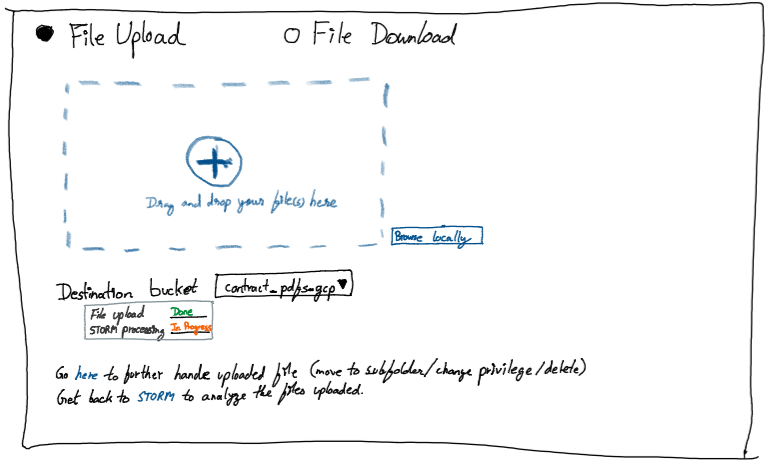 File Upload
File Download
Drag and drop your file(s) here
Browse locally
Destination bucket contract_pdfs_gcp
File upload Done
STORM processing In Progress
Go here to further handle uploaded file (move to subfolder/change privilege/delete)
Get back to STORM to analyze the files uploaded.